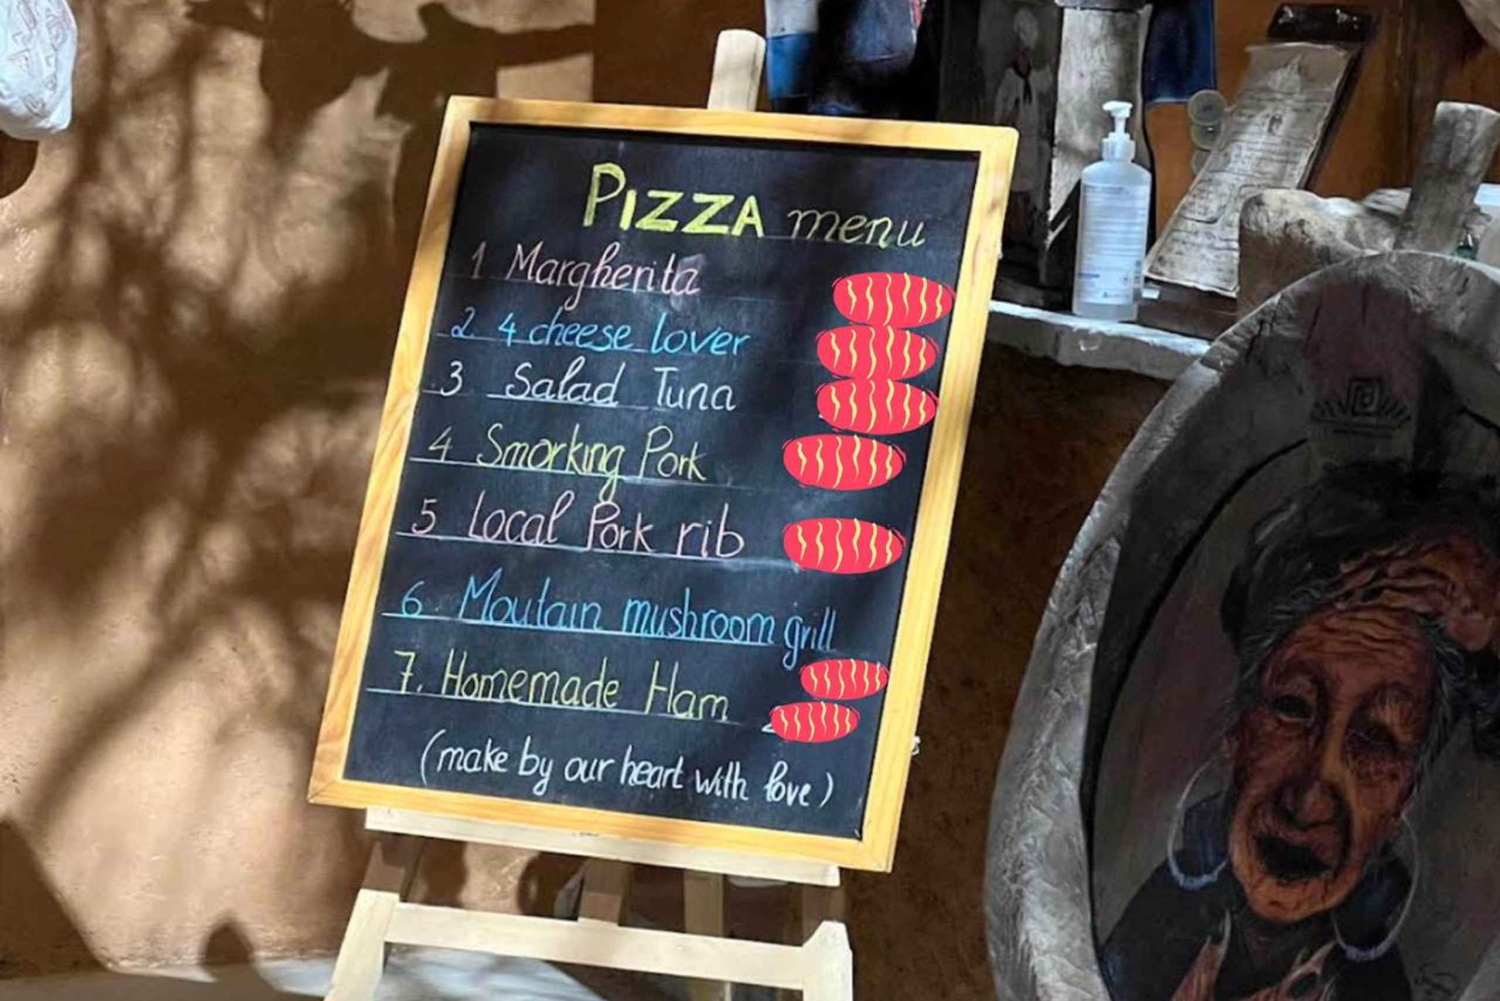 PIZZA menu
1 Margherita
2 4 cheese lover
3 Salad Tuna
4 Smorking Pork
5 Local Pork rib
6. Moutain mushroom grill
7. Homemade Ham
(make by our heart with love)